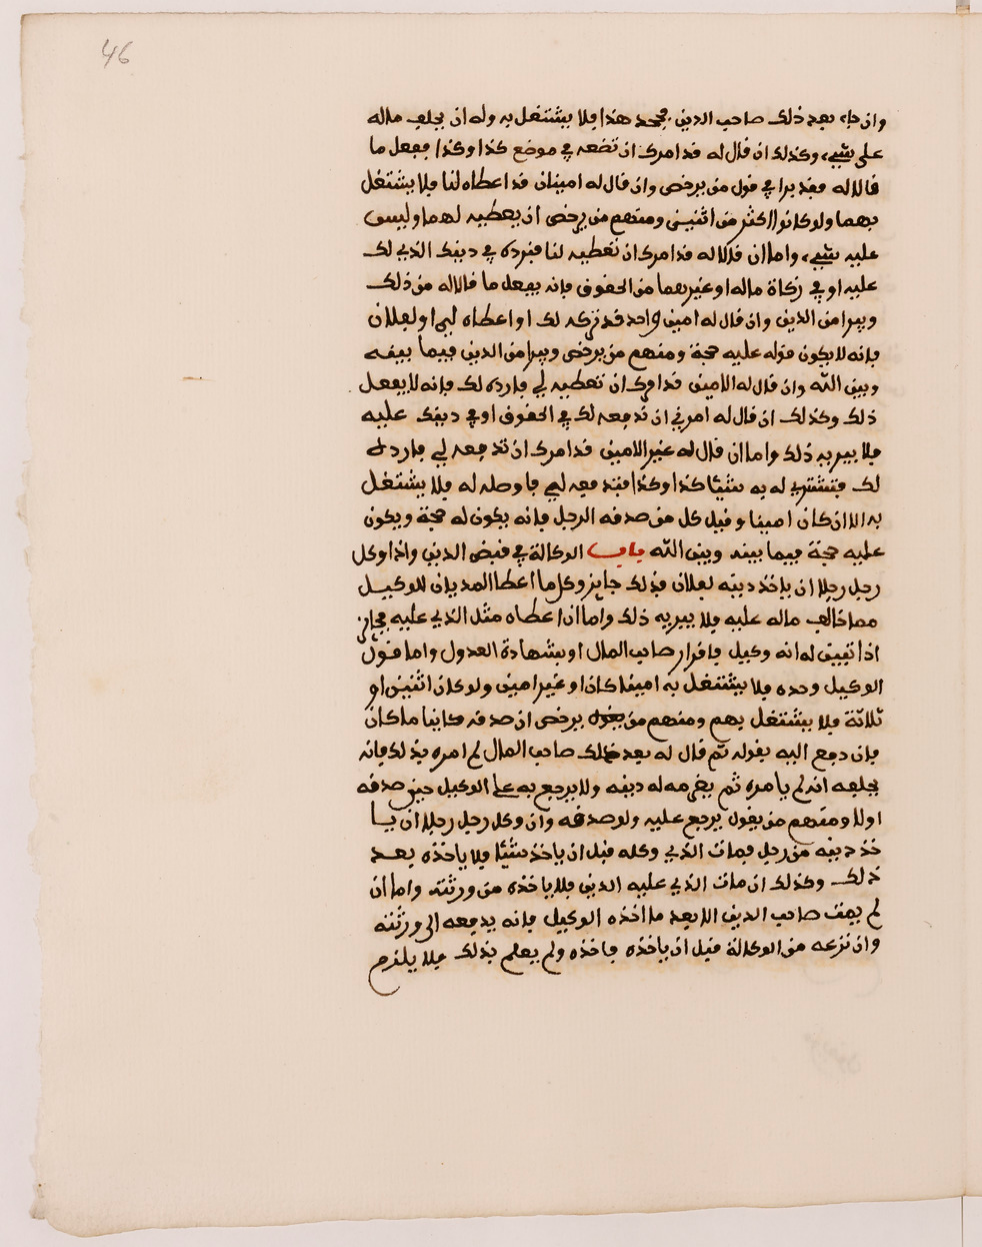 46
وان جاء بعد ذلك صاحب الدين فجحد هذا فلا يشتغل به وله ان يحلف ماله
على شيىء وكذلك ان قال له قد امرك ان تضعه في موضع كذا وكذا ففعل ما
قالا له فقد برا في قول من يرخص وان قال له امينان قد اعطاه لنا فلا يشتغل
بهما ولو كانوا اكثر من اثنين ومنهم من يرخص ان يعطيه لهما وليس
عليه شيىء واما ان قالا له قد امرك ان تعطيه لنا فنرده في دينك الذي لك
عليه او في زكاة ماله او غيرهما من الحقوق فانه يفعل ما قالا له من ذلك
ويبرا من الدين وان قال له امين واحد قد تركه لك او اعطاه لي او لفلان
فانه لا يكون قوله عليه حجة ومنهم من يرخص ويبرا من الدين فيما بينه
وبين الله وان قال له الامين قد امرك ان تعطيه لي فارده لك فانه لا يفعل
ذلك وكذلك ان قال له امرني ان ندفعه لك في الحقوق او في دينك عليه
فلا يبريه ذلك واما ان قال له غير الامين قد امرك ان تدفعه لي فارده
لك فتشتري له به شيئا كذا وكذا فتدفعه لي فاوصله له فلا يشتغل
به الا ان كان امينا وقيل كل من صدقه الرجل فانه يكون له حجة ويكون
عليه حجة فيما بينه وبين الله باب الوكالة في قبض الدين واذا وكل
رجل رجلا ان ياخذ دينه لفلان فذلك جايز وكل ما اعطا المديان للوكيل
مما خالف ماله عليه فلا يبريه ذلك واما ان اعطاه مثل الذي عليه فجائز
اذا تبين له انه وكيل باقرار صاحب المال او بشهادة العدول واما قول
الوكيل وحده فلا يشتغل به امينا كان او غير امين ولو كان اثنين او
ثلاثة فلا يشتغل بهم ومنهم من يقول يرخص ان صدقه كاينا ما كان
فان دفع اليه بقوله ثم قال له بعد ذلك صاحب المال لم امره بذلك فانه
يحلفه انه لم يامره ثم يغرمه له دينه ولا يرجع به على الوكيل حين صدقه
اولا ومنهم من يقول يرجع عليه ولو صدقه وان وكل رجل رجلا ان يا
خذ دينه من رجل فمات الذي وكله قبل ان ياخذ شيئا فلا ياخذه بعد
ذلك وكذلك ان مات الذي عليه الدين فلا ياخذه من ورثته واما ان
لم يمت صاحب الدين الا بعد ما اخذه الوكيل فانه يدفعه الى ورثته
وان نزعه من الوكالة قبل ان ياخذه فاخذه ولم يعلم بذلك فلا يلزم